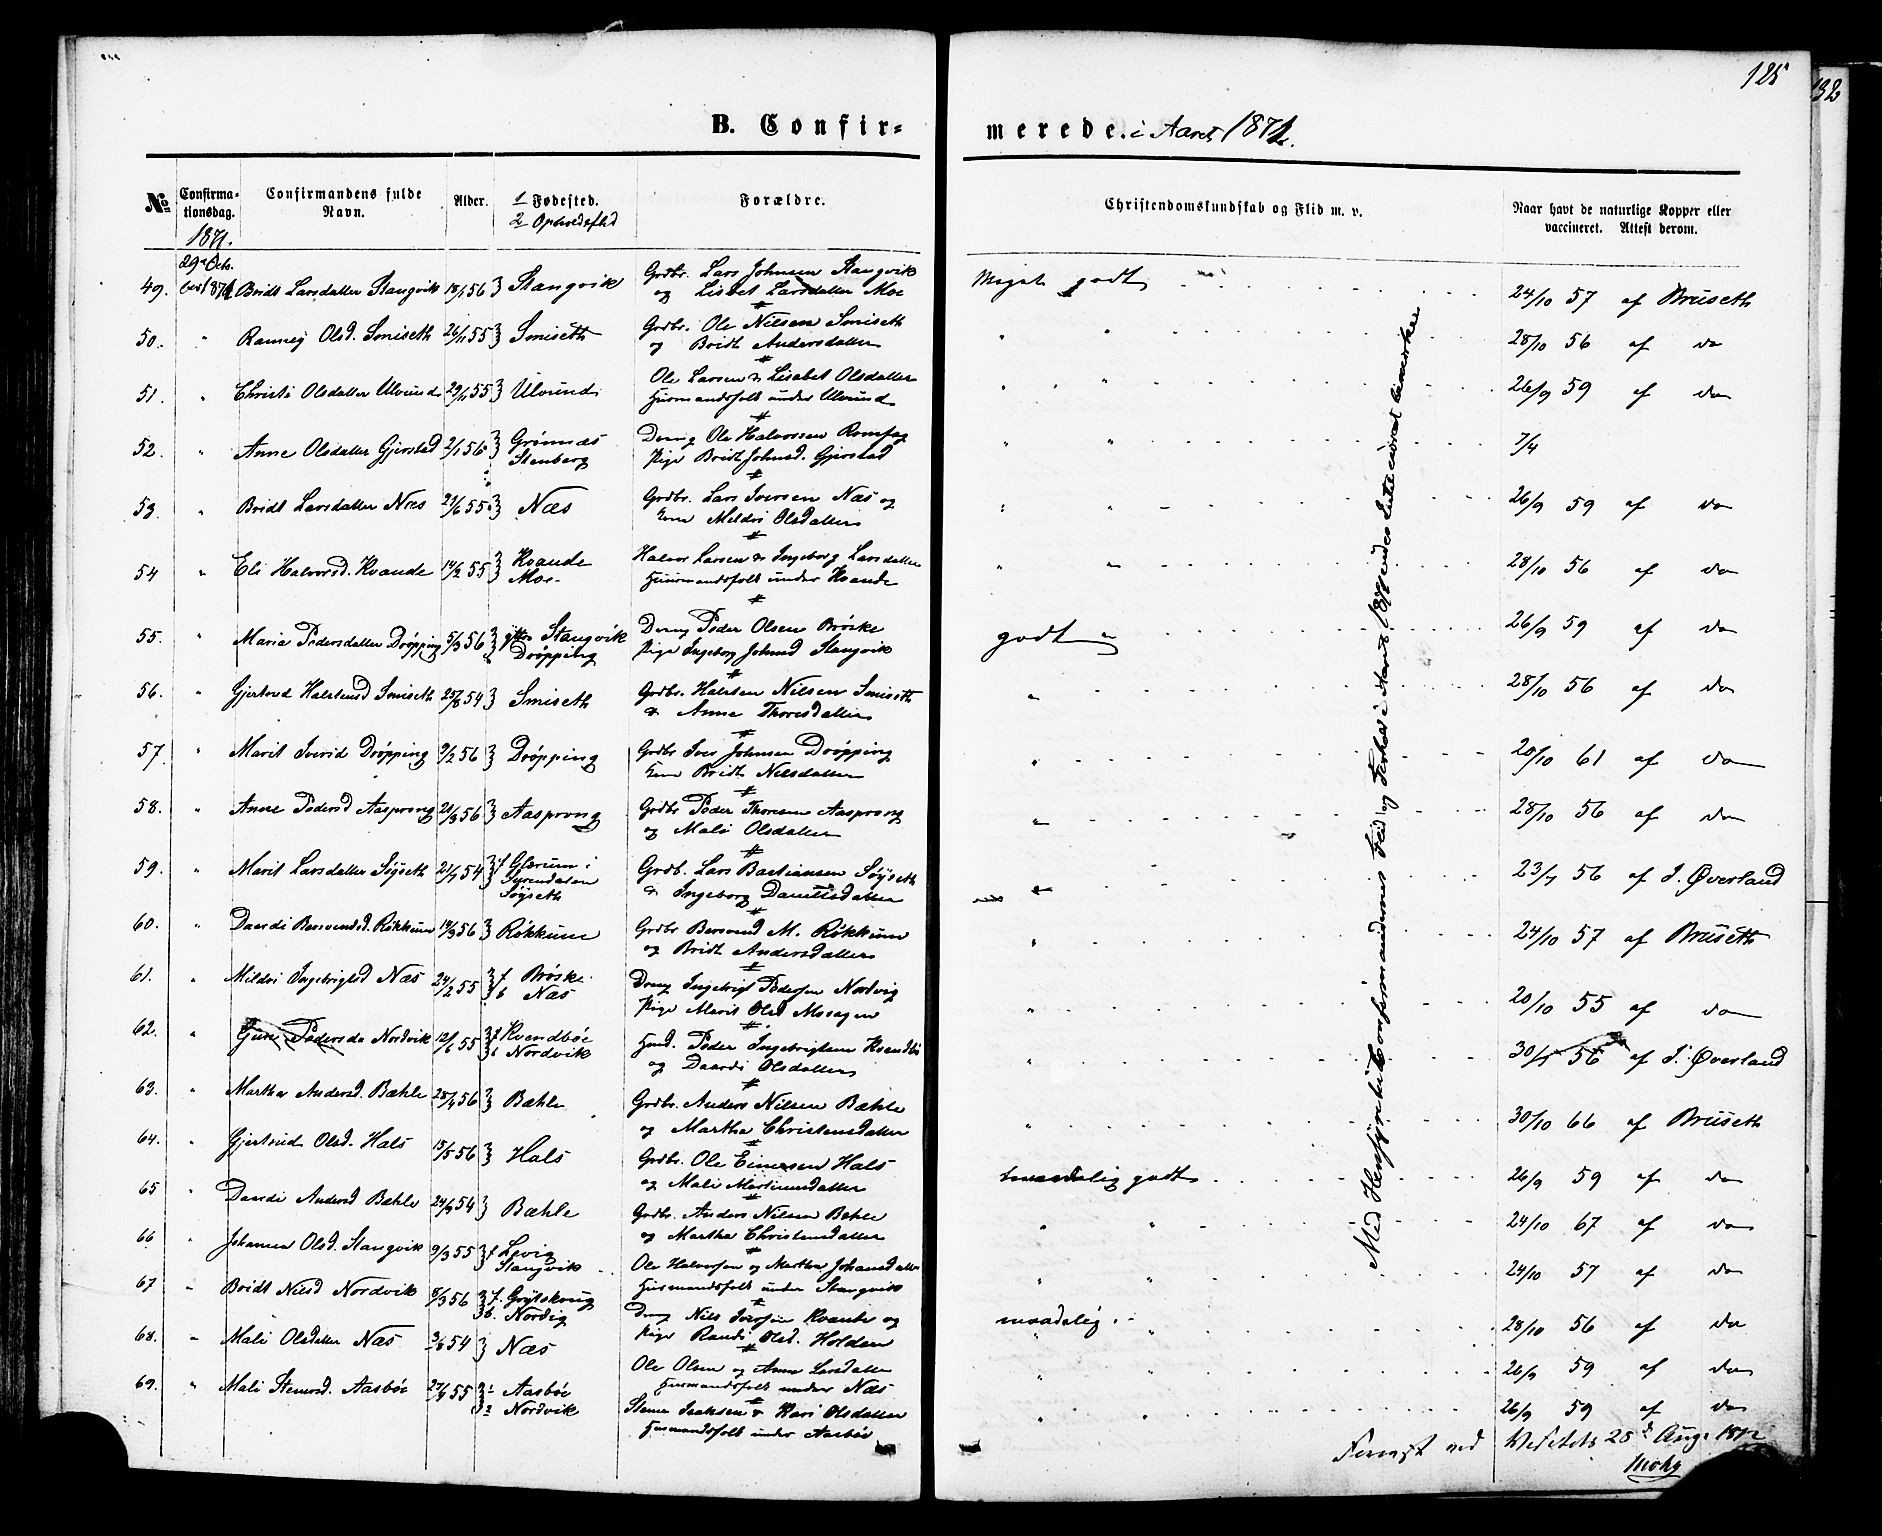 125
132
B. Confir-
merede. i Aaret 1871.
No
Confirma-
tionsdag.
Confirmandens fulde
Navn.
Alder.
1 Fødested.
2 Opholdssted
Forældre.
Christendomskundskab og Flid m. v.
Naar havt de naturlige Kopper eller
vaccineret. Attest derom.
1871.
29de Octb.
49. 1871 Bridt Larsdatter Stangvik 18/1 56 Stangvik Grdbr. Lars Johnsen Stangvik Meget godt 24/10 57 af Bruseth
og Lisbet Larsdatter Moe
50. " Olsd. Smiseth 26/1 55 Smiseth Grdbr. Ole Nilsen Smiseth " " 28/10 56 af do
og Bridt Andersdatter
51. " Christi Olsdatter Ulvund 29/1 55 Ulvund Ole Larsen & Lisabet Olsdatter " " 26/9 59 af do
Huusmandsfolk under Ulvund
52. " Anne Olsdatter Gjerstad 2/1 56 Grønnæs Ole Halvorsen Romfog " " 7/4
Stenberg Pige Bridt Johnsd. Gjerstad
53. " Bridt Larsdatter Næs 21/6 55 Næs Grdbr. Lars Iversen Næs og " " 26/9 59 af do
Kone Mildri Olsdatter
54 " Eli Halvorsd. Kvande 14/2 55 Kvande Halvor Larsen & Ingeborg Larsdatter " " 28/10 56 af do
Moe Huusmandsfolk under Kvande
55. " Maria Pedersdatter Drøpping 5/3 56 Stangvik Peder Olsen Brøske godt 26/9 59 af do
Drøpping Pige Ingeborg Johnsd Stangvik
56. " Gjertrud Halstensd Smiseth 25/8 54 Smiseth Grdbr. Halsten Nilsen Smiseth " 28/10 56 af do
& Anne Thoresdatter
57. " Marit Iversd Drøpping 9/2 56 Drøpping Grdbr Iver Johnsen Drøpping " 20/10 61 af do
Kone Bridt Nilsdatter
58. " Anne Pedersd Aasprong 21/3 56 Aasprong Grdbr Peder Thoresen Aasprong " 28/10 56 af do
og Mali Olsdatter
59. " Marit Larsdatter Søyseth 21/7 54 f Glærum i Grdb. Lars Bastiansen Søyseth " 23/7 56 af I. Øverland
Surendalen
Søyseth & Ingeborg Danielsdatter
60. " Daardi Bersvendsd. Røkkum 19/3 56 Røkkum Grdbr Bersvend M. Røkkum " 24/10 57 af Bruseth
og Bridt Andersdatter
61. " Mildri Ingebrigtsd Næs 24/2 55 f Brøske Ingebrigt Pedersen Nordvig " 20/10 55 af do
b Næs Pige Marit Olsd Moeagen
62. " Guri Pedersda Nordvik 12/6 55 f Kvendbøe Huusd. Peder Ingebrigtsen Kvendbø " 30/5 56 af I. Øverland
b Nordvik og Daardi Olsdatter
63. " Martha Andersd. Bæhle 28/4 56 Bæhle Grdbr. Anders Nilsen Bæhle " 30/10 66 af Bruseth
og Martha Christensdatter
64. " Gjertrud Olsd. Hals 15/5 56 Hals Grdbr. Ole Einersen Hals temmelig godt 26/9 59 af do
og Mali Mortinusdatter
65 " Daardi Andersd Bæhle 24/9 54 Bæhle Grdbr. Anders Nilsen Bæhle " " 24/10 67 af do
og Martha Christensdatter
66 " Johanna Olsd. Stangvik 9/3 55 f Løvig Ole Halvorsen og Martha Johansdatter " " 24/10 57 af do
Stangvik Huusmandsfolk under Stangvik
67 " Bridt Nilsd Nordvik 8/3 56 f. Grytskoug Nils Iversen Kvande og maadelig. 28/10 56 af do
b. Nordvig Pige Randi Olsd. Holden
68. " Mali Olsdatter Næs 3/6 54 Næs Ole Olsen og Anne Larsdatter " " 26/9 59 af do
Huusmandsfolk under Næs
69. " Mali Stenersd. Aasbøe 27/9 55 1 Aasbøe Stener Isaksen & Kari Olsdatter " " 26/9 59 af do
2 Nordvik Huusmandsfolk under Aasbøe
Med Hensyn til Confirmandernes Flid og Forhold i Aaret 1871 findes Intet iøvrigt bemærket
Fremvist ved Visitats 25de Aug. 1872